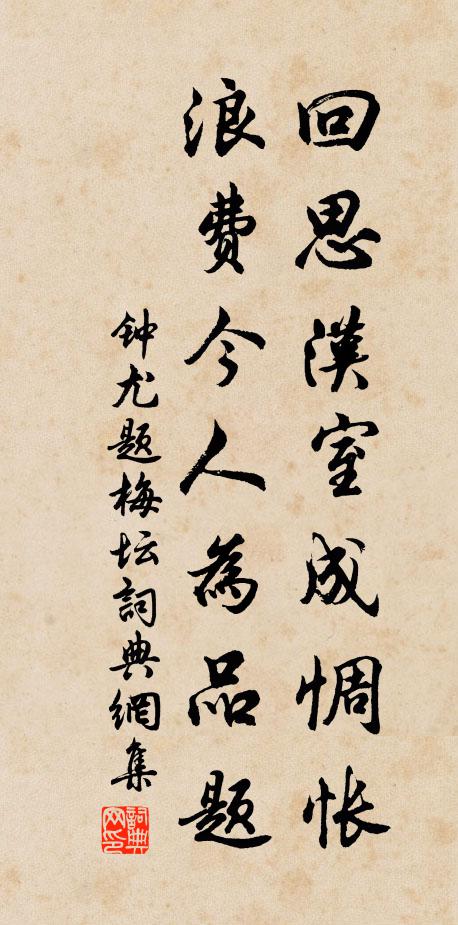 回思漢室成惆怅
浪費今人為品題
钟尤题梅坛詞典網集
詞典网印